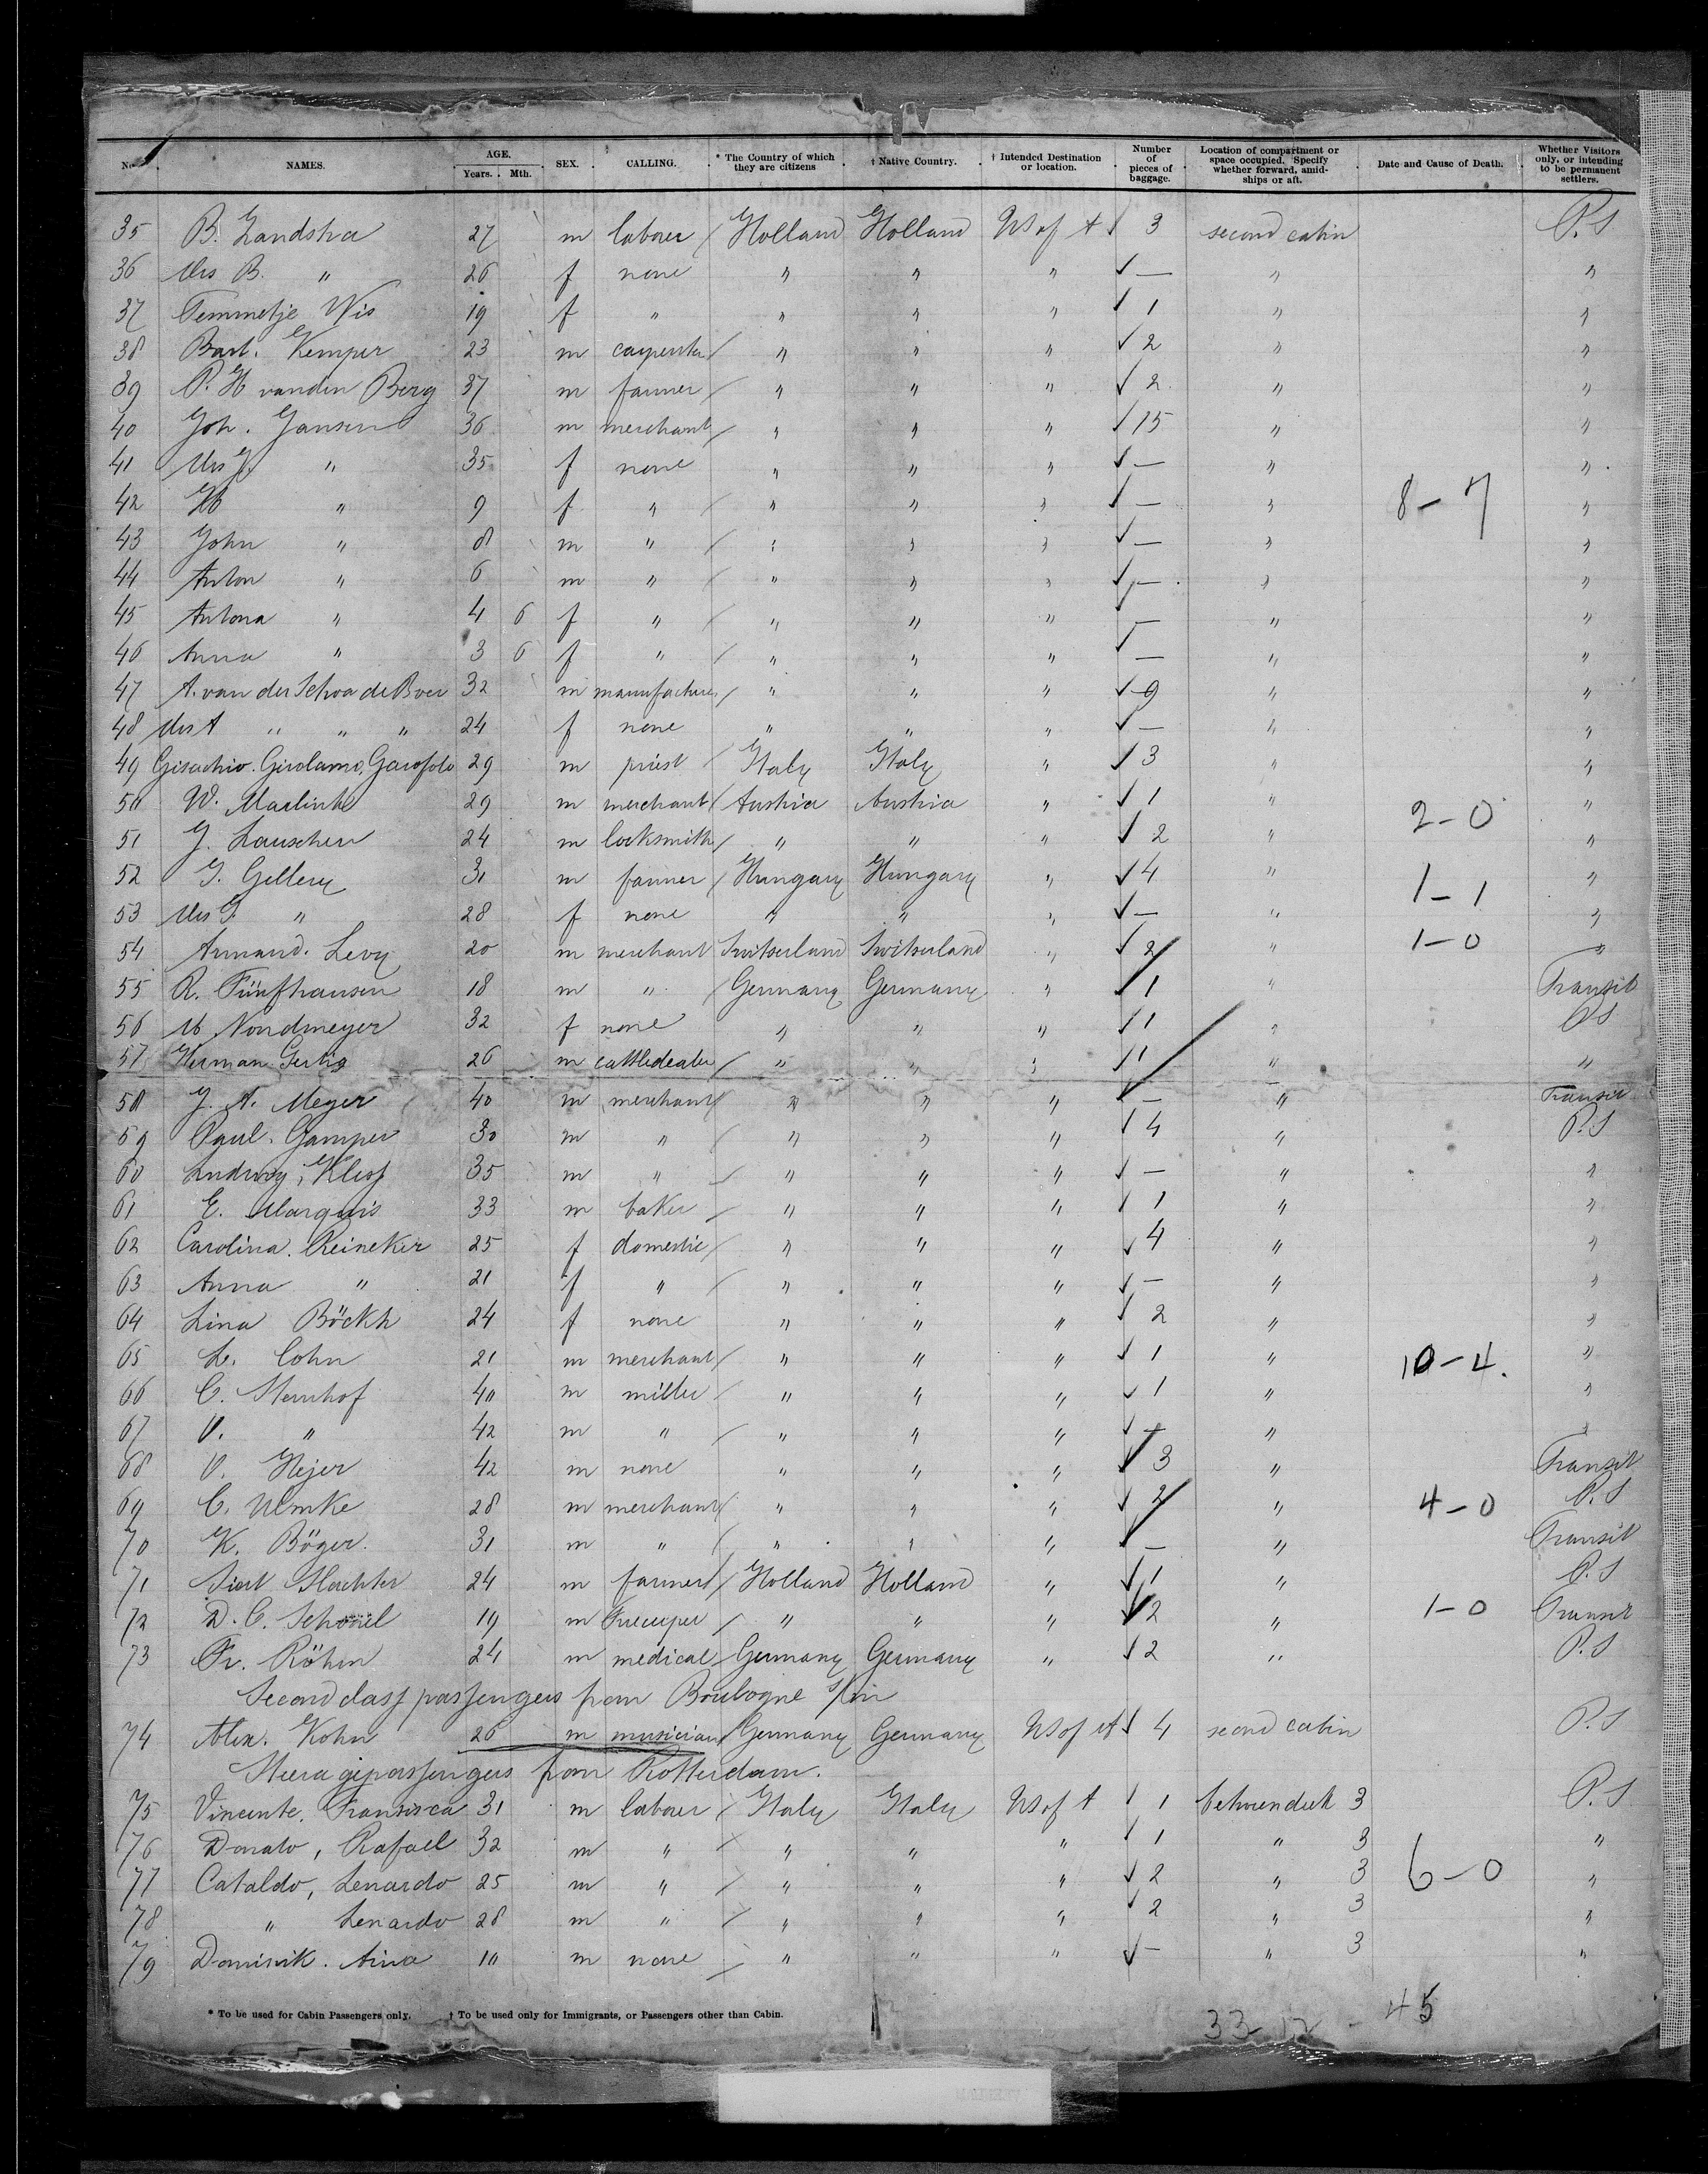 No. NAMES. AGE. Years. Mth. SEX. CALLING. * The Country of which they are citizens † Native Country. † Intended Destination or location. Number of pieces of baggage. Location of compartment or space occupied. Specify whether forward, amidships or aft. Date and Cause of Death. Whether Visitors only, or intending to be permanent settlers.
35 B. Zandstra 27 m laborer / Holland Holland US of A ✓ 3 second cabin P.S
36 Mrs B. " 26 f none " " " ✓ — " "
37 Temmetje Wis 19 f " " " " ✓ 1 " "
38 Bart. Kemper 23 m carpenter / " " " ✓ 2 " "
39 P. H vanden Berg 37 m farmer / " " " ✓ 2 " "
40 Joh. Jansen 36 m merchant / " " " ✓ 15 " "
41 Mrs J. " 35 f none " " " ✓ — " "
42 H " 9 f " / " " " ✓ — " 8-7 "
43 John " 8 m " / " " " ✓ — " "
44 Anton " 6 m " / " " " ✓ — " "
45 Antona " 4 6 f " / " " " ✓ — " "
46 Anna " 3 6 f " / " " " ✓ — " "
47 A. van der Schoa de Boer 32 m manufacturer / " " " ✓ 9 " "
48 Mrs A " " " 24 f none " " " ✓ — " "
49 Gisachio. Girolamo, Garofolo 29 m priest / Italy Italy " ✓ 3 " "
50 W. 29 m merchant / Austria Austria " ✓ 1 " 2-0 "
51 J. Lauscher 24 m locksmith / " " " ✓ 2 " "
52 G. Gellery 31 m farmer / Hungary Hungary " ✓ 4 " 1-1 "
53 Mrs G. " 28 f none " " " ✓ — " "
54 Armand. Levy 20 m merchant Switserland Switserland " ✓ 2 " 1-0 "
55 R. Fünfhausen 18 m " / Germany Germany " ✓ 1 " Transit
56 M Nordmeyer 32 f none " " " ✓ 1 " P.S
57 Herman Gertig 26 m cattledealer / " " " ✓ 1 " "
58 J. A. Meyer 40 m merchant / " " " ✓ — " Transit
59 Paul. Gamper 30 m " / " " " ✓ 4 " P.S
60 Ludwig, Klees 35 m " / " " " ✓ — " "
61 E. Marquis 33 m baker / " " " ✓ 1 " "
62 Carolina. Reineker 25 f domestic / " " " ✓ 4 " "
63 Anna " 21 f " / " " " ✓ — " "
64 Lina Böckh 24 f none " " " ✓ 2 " "
65 L. Cohn 21 m merchant / " " " ✓ 1 " 10-4. "
66 C. Sternhof 40 m miller / " " " ✓ 1 " "
67 V. " 42 m " / " " " ✓ — " "
68 V. Hejer 42 m none " " " ✓ 3 " Transit
69 C. Ulmke 28 m merchant / " " " ✓ 2 " 4-0 P.S
70 K. Böger. 31 m " / " " " ✓ — " Transit
71 Siert Slachter 24 m farmer / Holland Holland " ✓ 1 " P.S
72 D. C. 19 m / " " " ✓ 2 " 1-0 Transit
73 Fr. Röhm 24 m medical Germany Germany " ✓ 2 " P.S
Second class passengers from Boulogne s/m
74 Alex. Kohn 26 m musician / Germany Germany US of A ✓ 4 second cabin P.S
Steerage passengers from Rotterdam.
75 Vincente, Fransisca 31 m laborer / Italy Italy US of A ✓ 1 betweendeck 3 P.S
76 Donato, Rafael 32 m " / " " " ✓ 1 " 3 "
77 Cataldo, Lenardo 25 m " / " " " ✓ 2 " 3 6-0 "
78 " Lenardo 28 m " / " " " ✓ 2 " 3 "
79 Dominik. Aina 10 m none / " " " ✓ — " 3 "
* To be used for Cabin Passengers only. † To be used only for Immigrants, or Passengers other than Cabin.
33 12 - 45